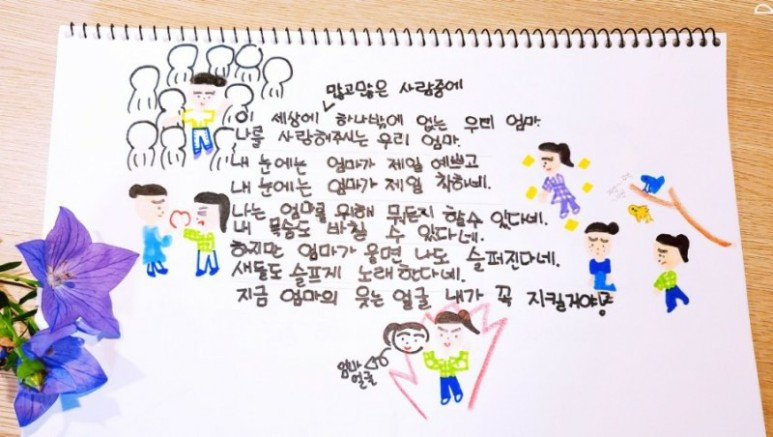 많고많은 사람중에
이 세상에 하나밖에 없는 우리 엄마.
나를 사랑해주시는 우리 엄마.
내 눈에는 엄마가 제일 예쁘고
내 눈에는 엄마가 제일 착하네.
나는 엄마를 위해 뭐든지 할수 있다네.
내 목숨도 바칠 수 있다네.
하지만 엄마가 울면 나도 슬퍼진다네.
새들도 슬프게 노래한다네.
지금 엄마의 웃는 얼굴 내가 꼭 지킬거야!
엄마
얼굴